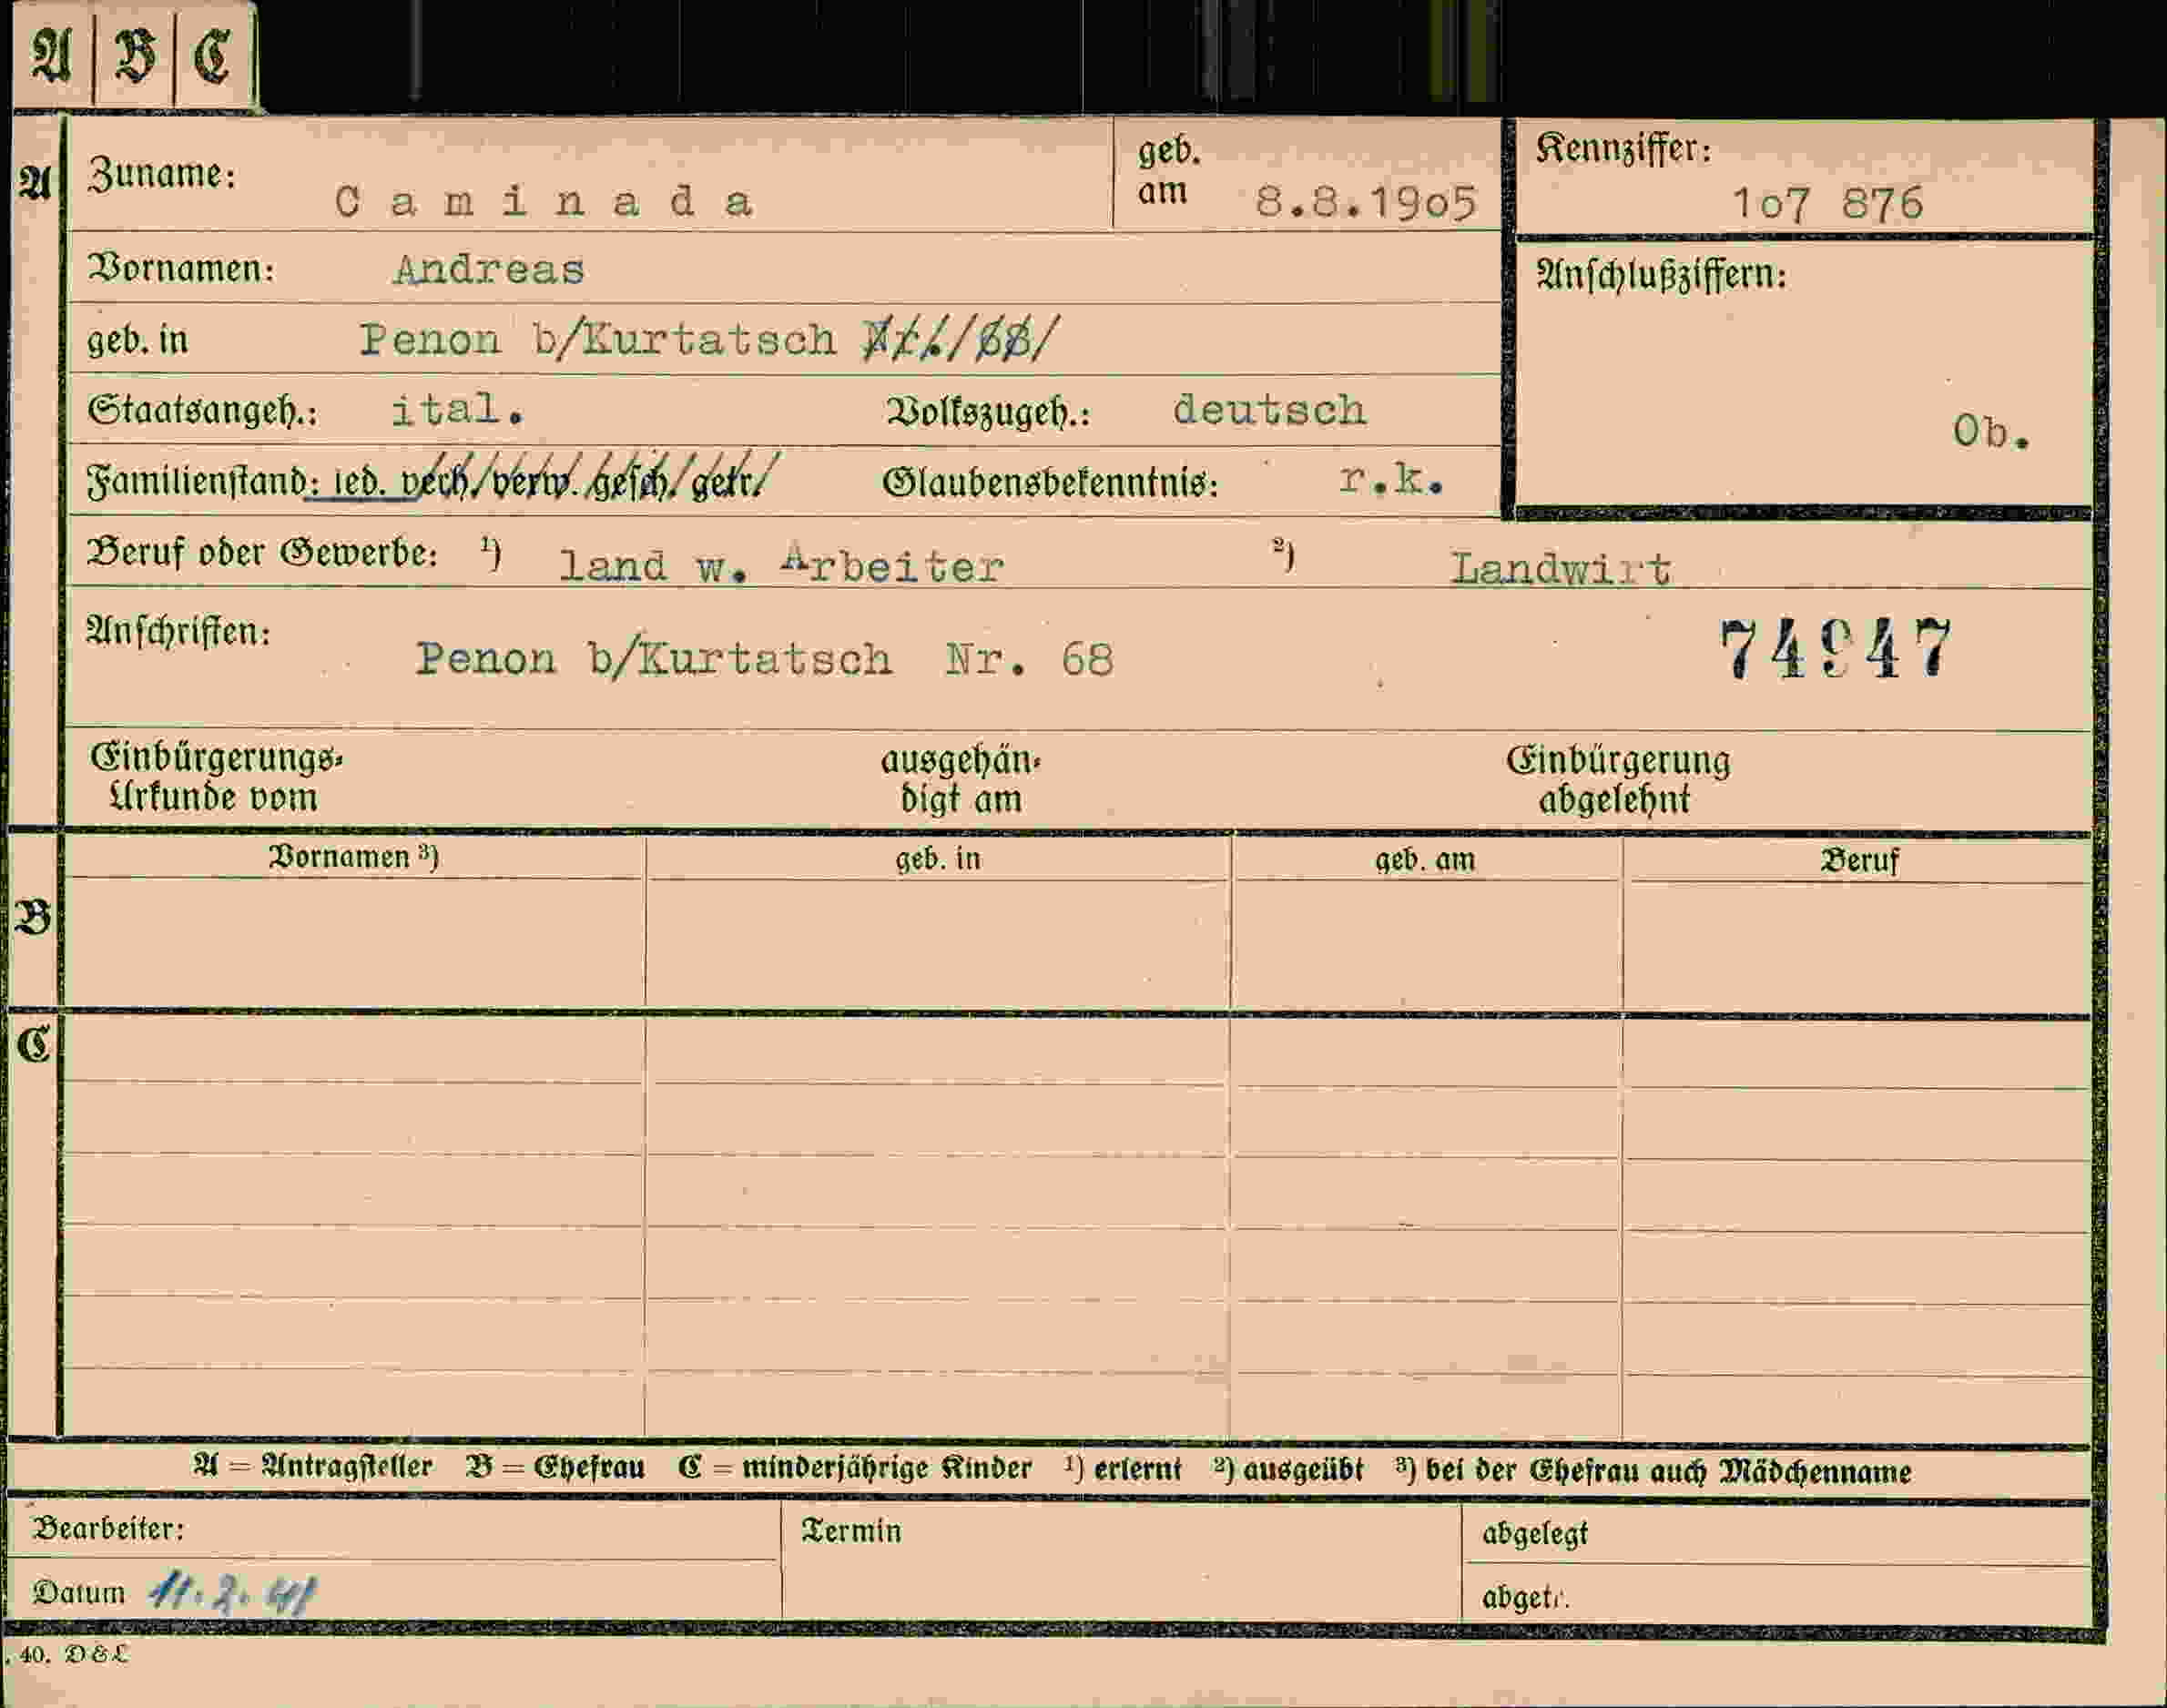 A B C
A Zuname: Caminada geb. am 8.8.19o5 Kennziffer: 1o7 876
Vornamen: Andreas Anschlußziffern:
geb. in Penon b/Kurtatsch
Staatsangeh.: ital. Volkszugeh.: deutsch Ob.
Familienstand: led. verh. verw. gesch. getr. Glaubensbekenntnis: r.k.
Beruf oder Gewerbe: 1) land w. Arbeiter 2) Landwirt
Anschriften: Penon b/Kurtatsch Nr. 68 74947
Einbürgerungs- ausgehän- Einbürgerung
Urkunde vom digt am abgelehnt
Vornamen 3) geb. in geb. am Beruf
B
C
A = Antragsteller B = Ehefrau C = minderjährige Kinder 1) erlernt 2) ausgeübt 3) bei der Ehefrau auch Mädchenname
Bearbeiter: Termin abgelegt
Datum 11.2.41 abgetr.
. 40. D & L